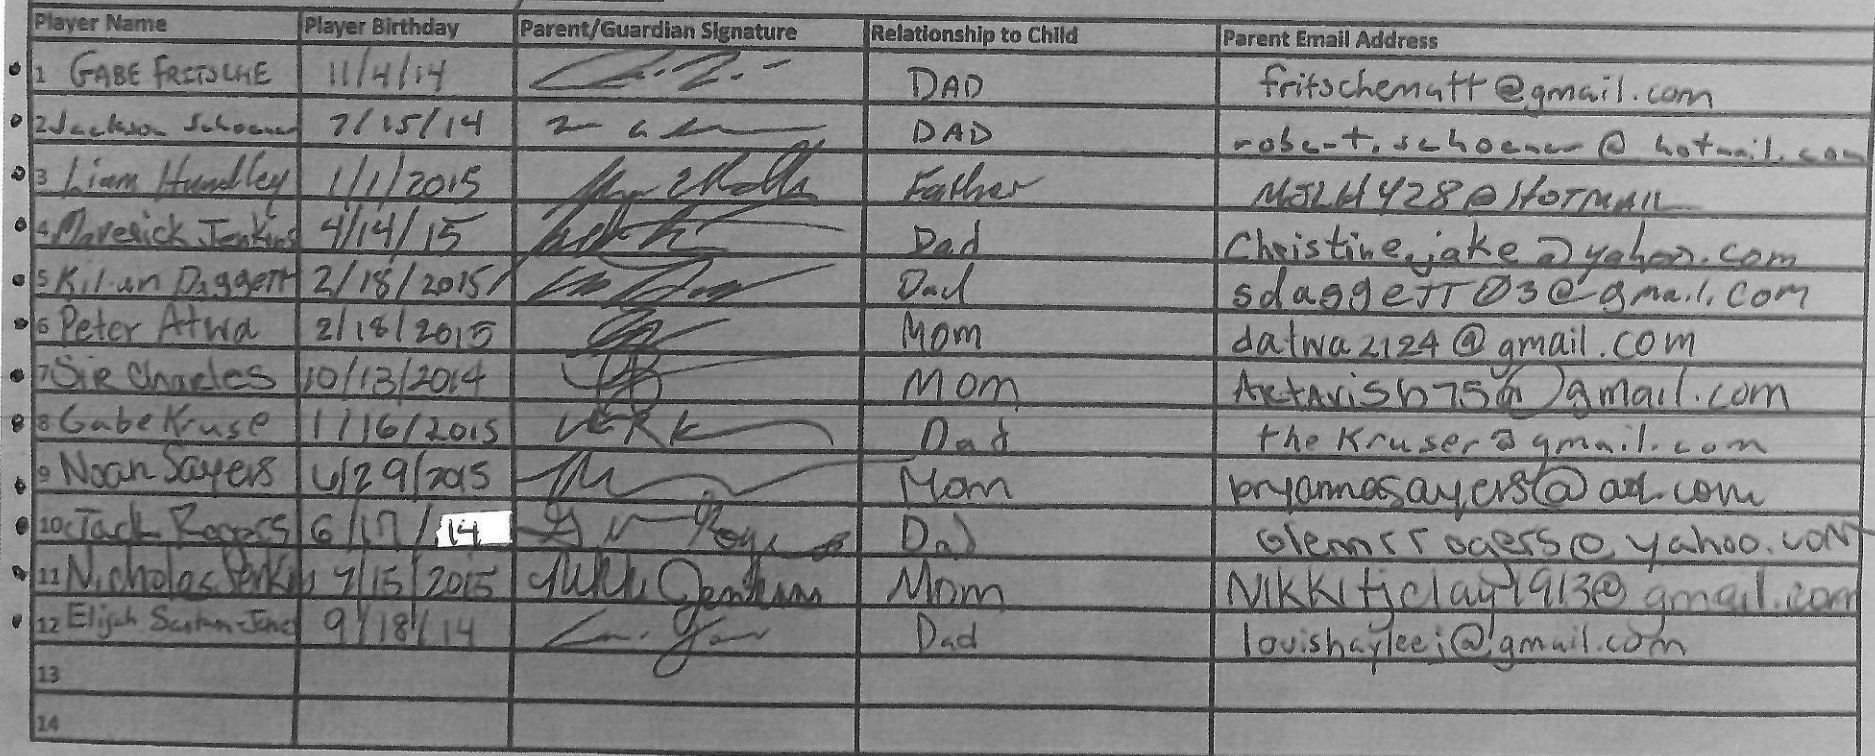 Player Name Player Birthday Parent/Guardian Signature Relationship to Child Parent Email Address
1 GABE FRITSCHE 11/4/14 DAD fritschematt@gmail.com
2 Jackson Schoener 7/15/14 DAD robert.schoener@hotmail.com
3 Liam Hundley 1/1/2015 Father MJLH428@HOTMAIL
4 Maverick Jenkins 4/14/15 Dad Christine.jake@yahoo.com
5 Kilian Daggett 2/18/2015 Dad sdaggeTT03@gmail.com
6 Peter Atwa 2/18/2015 Mom datwa2124@gmail.com
7 Sir Charles 10/13/2014 Mom @gmail.com
8 Gabe Kruse 1/16/2015 Dad theKruser@gmail.com
9 Noah Sayers 6/29/2015 Mom bryannasayers@aol.com
10 Jack Rogers 6/17/14 Dad Glennsrogers@yahoo.com
11 Nicholas 7/15/2015 Mom @gmail.com
12 Elijah 9/18/14 Dad louishayleej@gmail.com
13
14